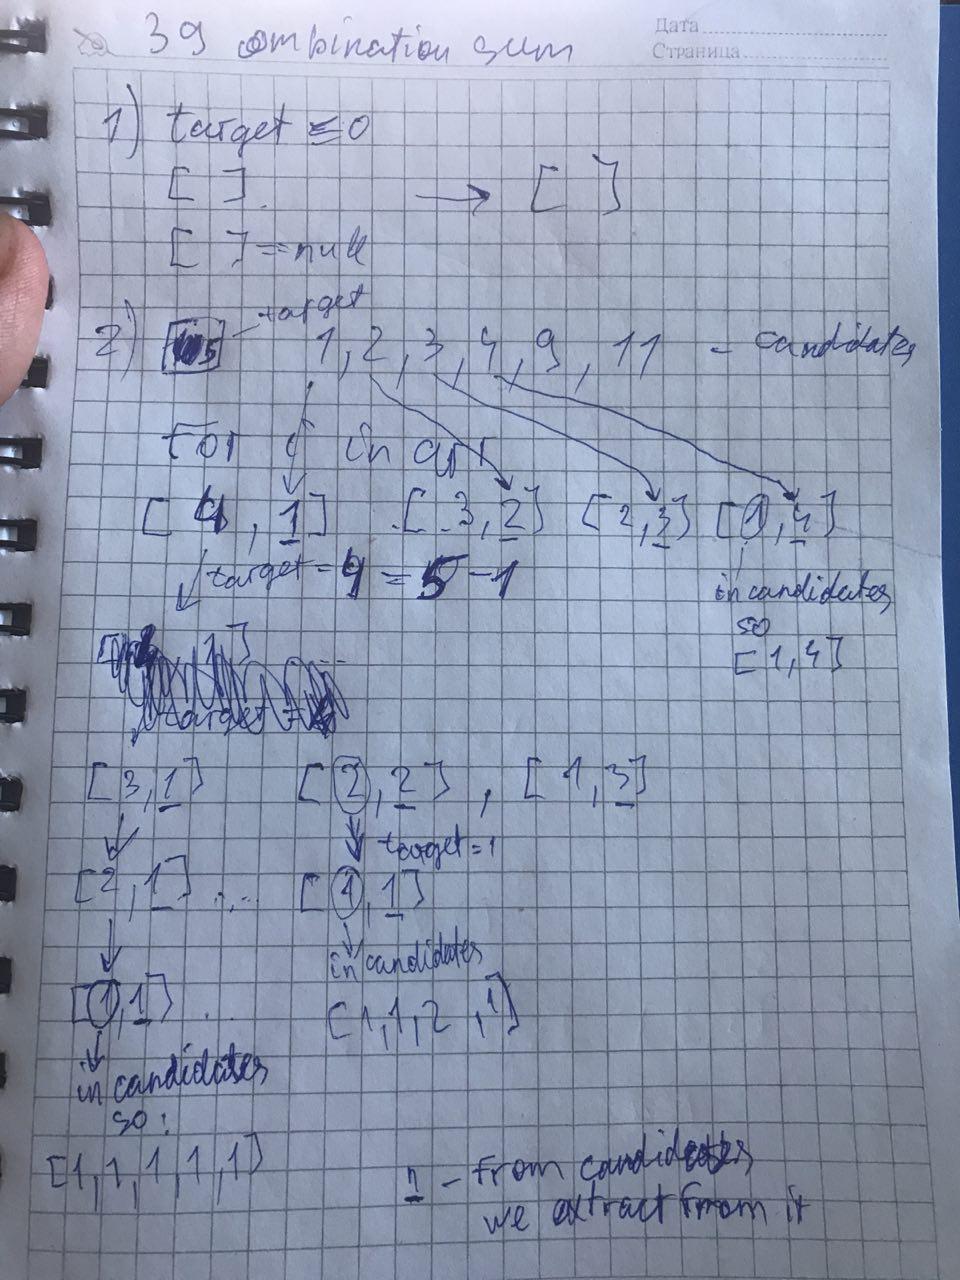 Дата
Страница
39 ombination sum
1) target ≤ 0
[ ] → [ ]
[ ] = null
target
2) 5 1, 2, 3, 4, 9, 11 - candidates
For i in arr
[ 4, 1 ] [ 3, 2 ] [ 2, 3 ] [ 1, 4 ]
target = 4 = 5 - 1
in candidates
so
[ 1, 4 ]
1 ]
target =
[ 3, 1 ] [ 2, 2 ] , [ 1, 3 ]
target = 1
[ 2, 1 ] ..... [ 1, 1 ]
in candidates
[ 1, 1 ] ... [ 1, 1, 2, 1 ]
in candidates
so:
[ 1, 1, 1, 1, 1 ]
1 - from candidates
we extract from it